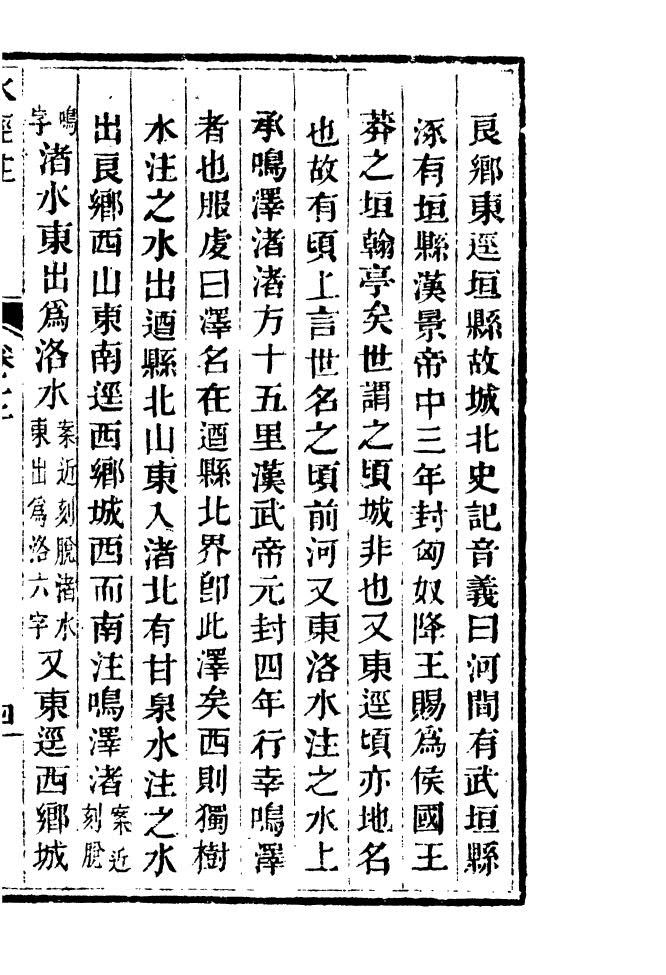 良鄉東逕垣縣故城北史記音義曰河間有武垣縣
涿有垣縣漢景帝中三年封匈奴降王賜爲侯國王
莽之垣翰亭矣世謂之頃城非也又東逕頃亦地名
也故有頃上言世名之頃前河又東洛水注之水上
承鳴澤渚渚方十五里漢武帝元封四年行幸鳴澤
者也服虔曰澤名在遒縣北界卽此澤矣西則獨樹
水注之水出遒縣北山東入渚北有甘泉水注之水
出良鄉西山東南逕西鄉城西而南注鳴澤渚案近刻脫
鳴字渚水東出爲洛水案近刻脫渚水東出爲洛六字又東逕西鄉城
水經注